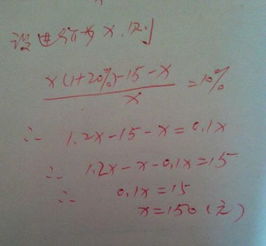 设进价为x,则
x(1+20%)-15-x / x =10%
∴ 1.2x-15-x=0.1x
∴ 1.2x-x-0.1x=15
∴ 0.1x=15
x=150(元)